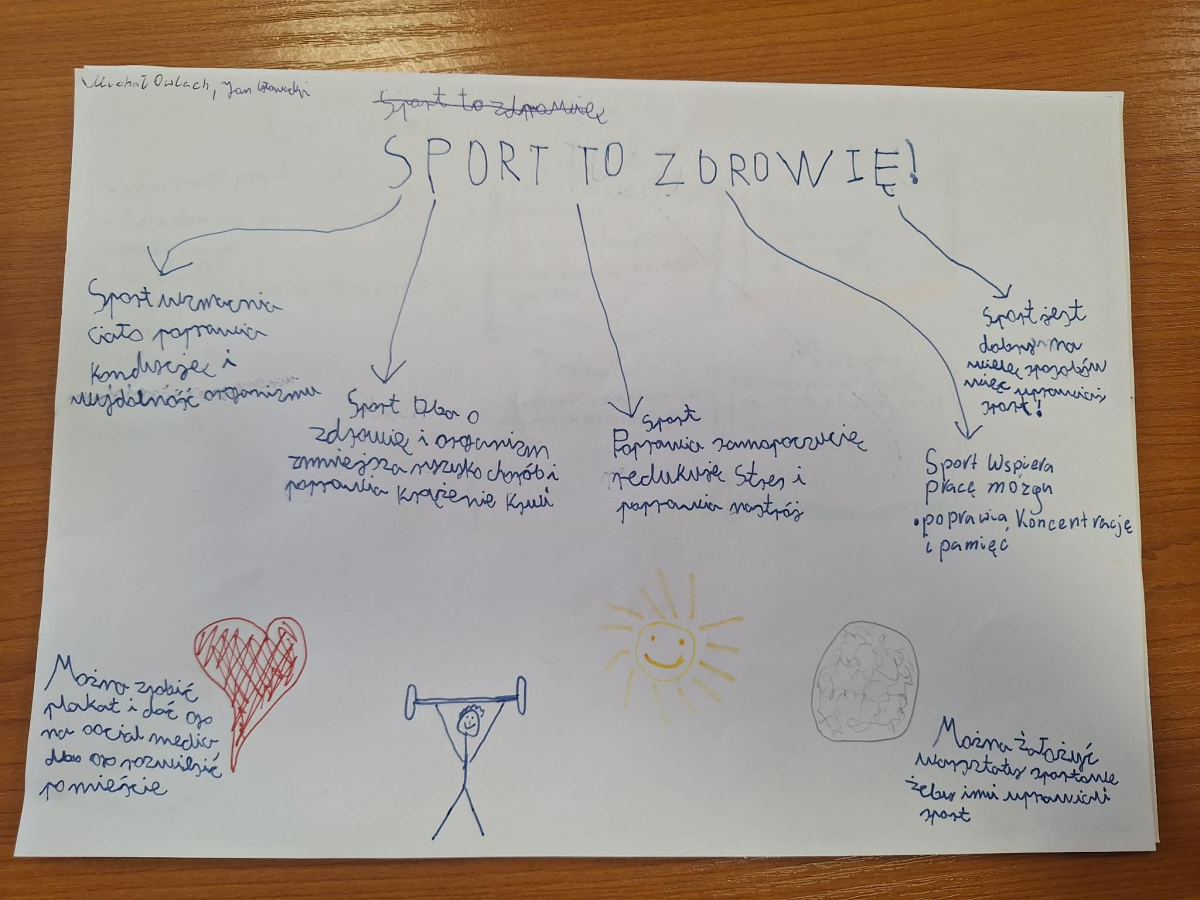 Michał Owlach, Jan
Sport to zdrowię
SPORT TO ZDROWIĘ!
Sport wzmacnia
ciało poprawia
kondycję i
wydolność organizmu
Sport Dba o
zdrowię i organizm
zmniejsza ryzyko chorób i
poprawia krążenie krwi
Sport
Poprawia samopoczucię
redukuję Stres i
poprawia nastrój
Sport Wspiera
pracę mózgu
•poprawia Koncentrację
i pamięć
Sport jest
dobry na
wielę sposobów
więc uprawiaj
sport!
Można zrobić
plakat i dać go
na social media
albo go rozwiesić
po mieście
Można założyć
warsztaty sportowe
żeby inni uprawiali
sport